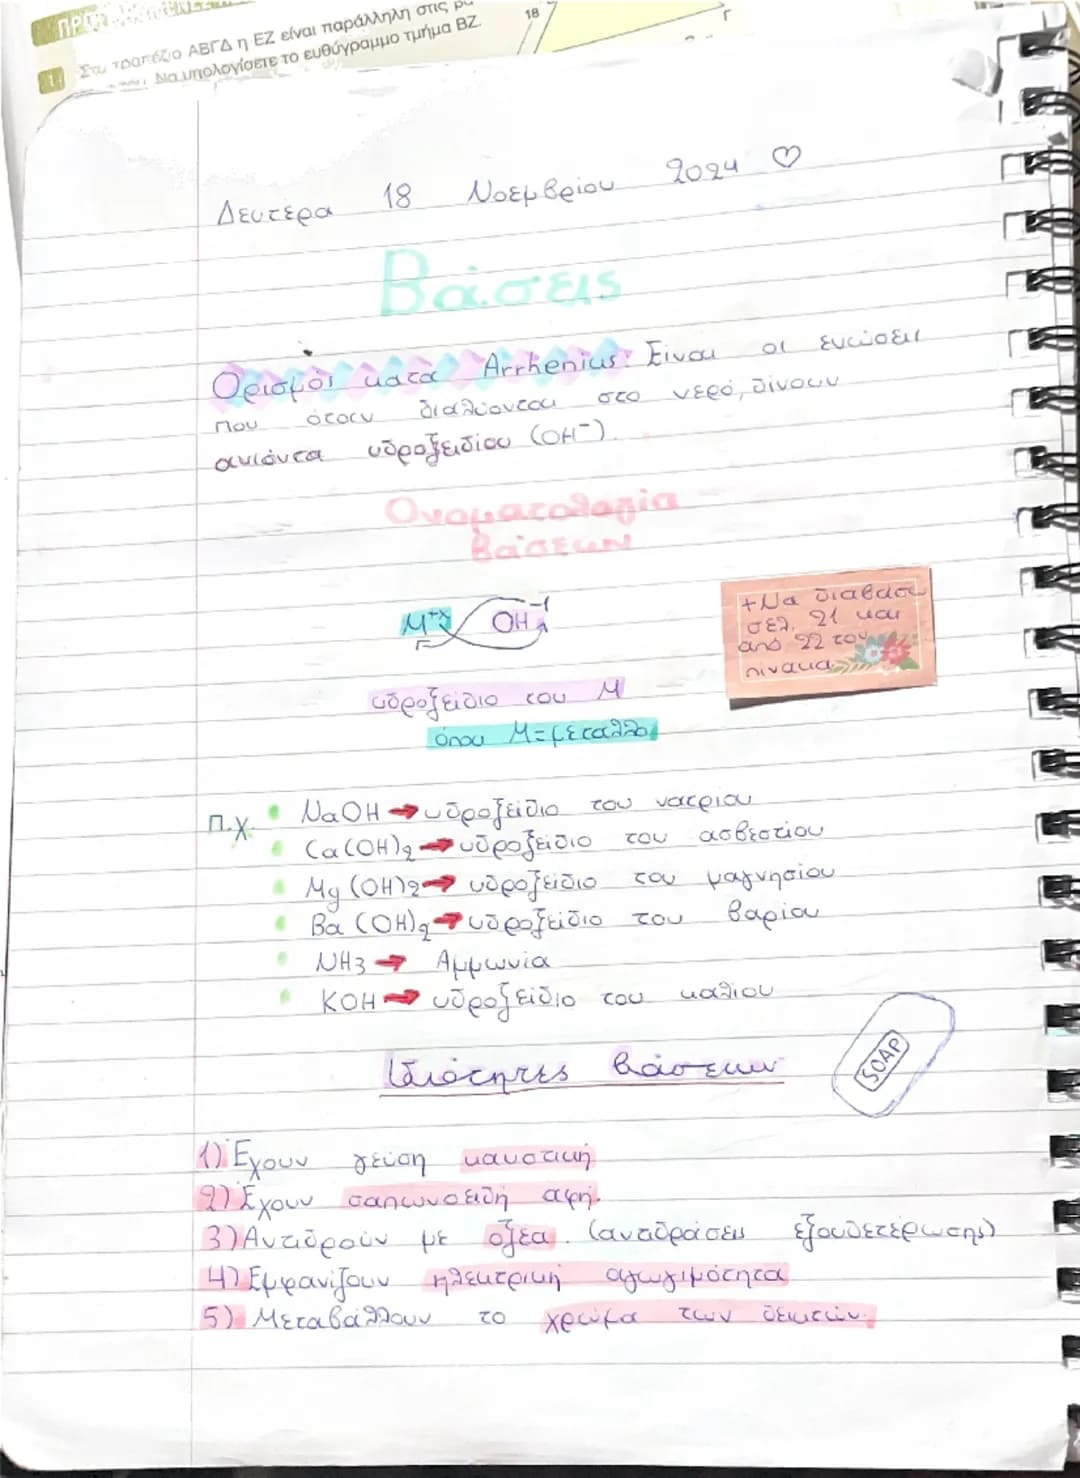 Στο τραπέζιο ΑΒΓΔ η ΕΖ είναι παράλληλη στις
Να υπολογίσετε το ευθύγραμμο τμήμα ΒΖ.
18
Γ
Δευτέρα 18 Νοεμβρίου 2024 ♡
Βάσεις
Ορισμός κατά Arrhenius: Είναι οι ενώσεις
που όταν διαλύονται στο νερό, δίνουν
ανιόντα υδροξειδίου (OH⁻).
Ονοματολογία
βάσεων
M⁺ˣ OH⁻¹
+Να διαβάσω
σελ. 21 και
από 22 τον
πίνακα
υδροξείδιο του Μ
όπου Μ=μέταλλο
π.χ.
NaOH → υδροξείδιο του νατρίου
Ca(OH)₂ → υδροξείδιο του ασβεστίου
Mg(OH)₂ → υδροξείδιο του μαγνησίου
Ba(OH)₂ → υδροξείδιο του βαρίου
NH3 → Αμμωνία
KOH → υδροξείδιο του καλίου
Ιδιότητες βάσεων
SOAP
1) Έχουν γεύση καυστική
2) Έχουν σαπωνοειδή αφή.
3) Αντιδρούν με οξέα. (αντιδράσεις εξουδετέρωσης)
4) Εμφανίζουν ηλεκτρική αγωγιμότητα
5) Μεταβάλλουν το χρώμα των δεικτών.